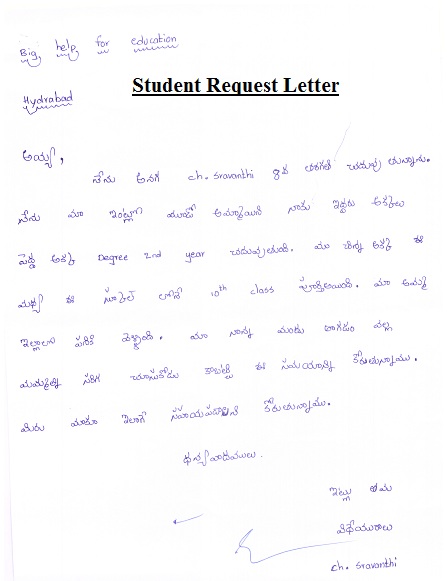 Big help for education
Student Request Letter
Hydrabad
అయ్యా,
నేను అనగ ch. sravanthi 8వ తరగతి చదువు తున్నాను.
నేను మా ఇంట్లో మూడో అమ్మాయిని నాకు ఇద్దరు అక్కలు
పెద్ద అక్క Degree 2nd year చదువుతుంది. మా చిన్న అక్క ఈ
మధ్య ఈ స్కూల్ లోనే 10th class పూర్తిఅయింది. మా అమ్మ
ఇల్లాలో పనికి వెళ్తుంది. మా నాన్న మందు తాగడం వల్ల
మమ్మల్ని సరిగ చూసుకోడు కాబట్టి ఈ సహయాన్ని కోరుతున్నాము.
మీరు మాకు ఇలాగే సహాయపడాలని కోరుతున్నాము.
ధన్యవాదములు.
ఇట్లు తమ
విధేయురాలు
ch. sravanthi